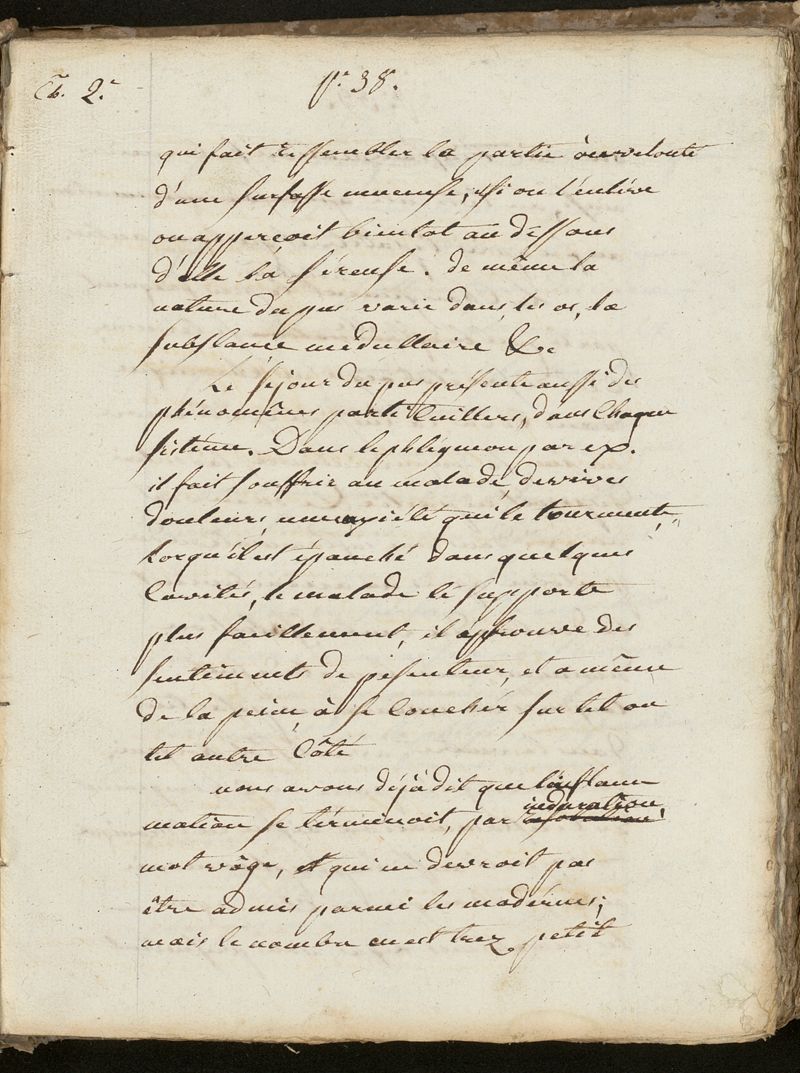 Ch. 2.e
p.e 38.
qui fait ressembler la partie
d'une surfasse muceuse, si on l'enlève
on apperçoit bientot au dessous
d'elle la séreuse. de même la
nature du pus varie dans les os, la
substance medullaire &c.
Le séjour du pus présente aussi des
phénomênes particuilliers, dans chaque
sistême. Dans le phlegmon par ex.
il fait souffrir au malade, de vives
douleurs, une anxiété qui le tourmente,
Lorqu'il est épanché dans quelques
Cavités, le malade le supporte
plus facillement, il épprouve des
sentiments de pesenteur, et a même
de la peine, à se couchér sur tel ou
tel autre côté
nous avons déjà dit que l'inflam
mation se términoit, par induration,
mot vâge, et qui ne devroit pas
être admis parmi les modérnes;
mais le nombre en est trez petit